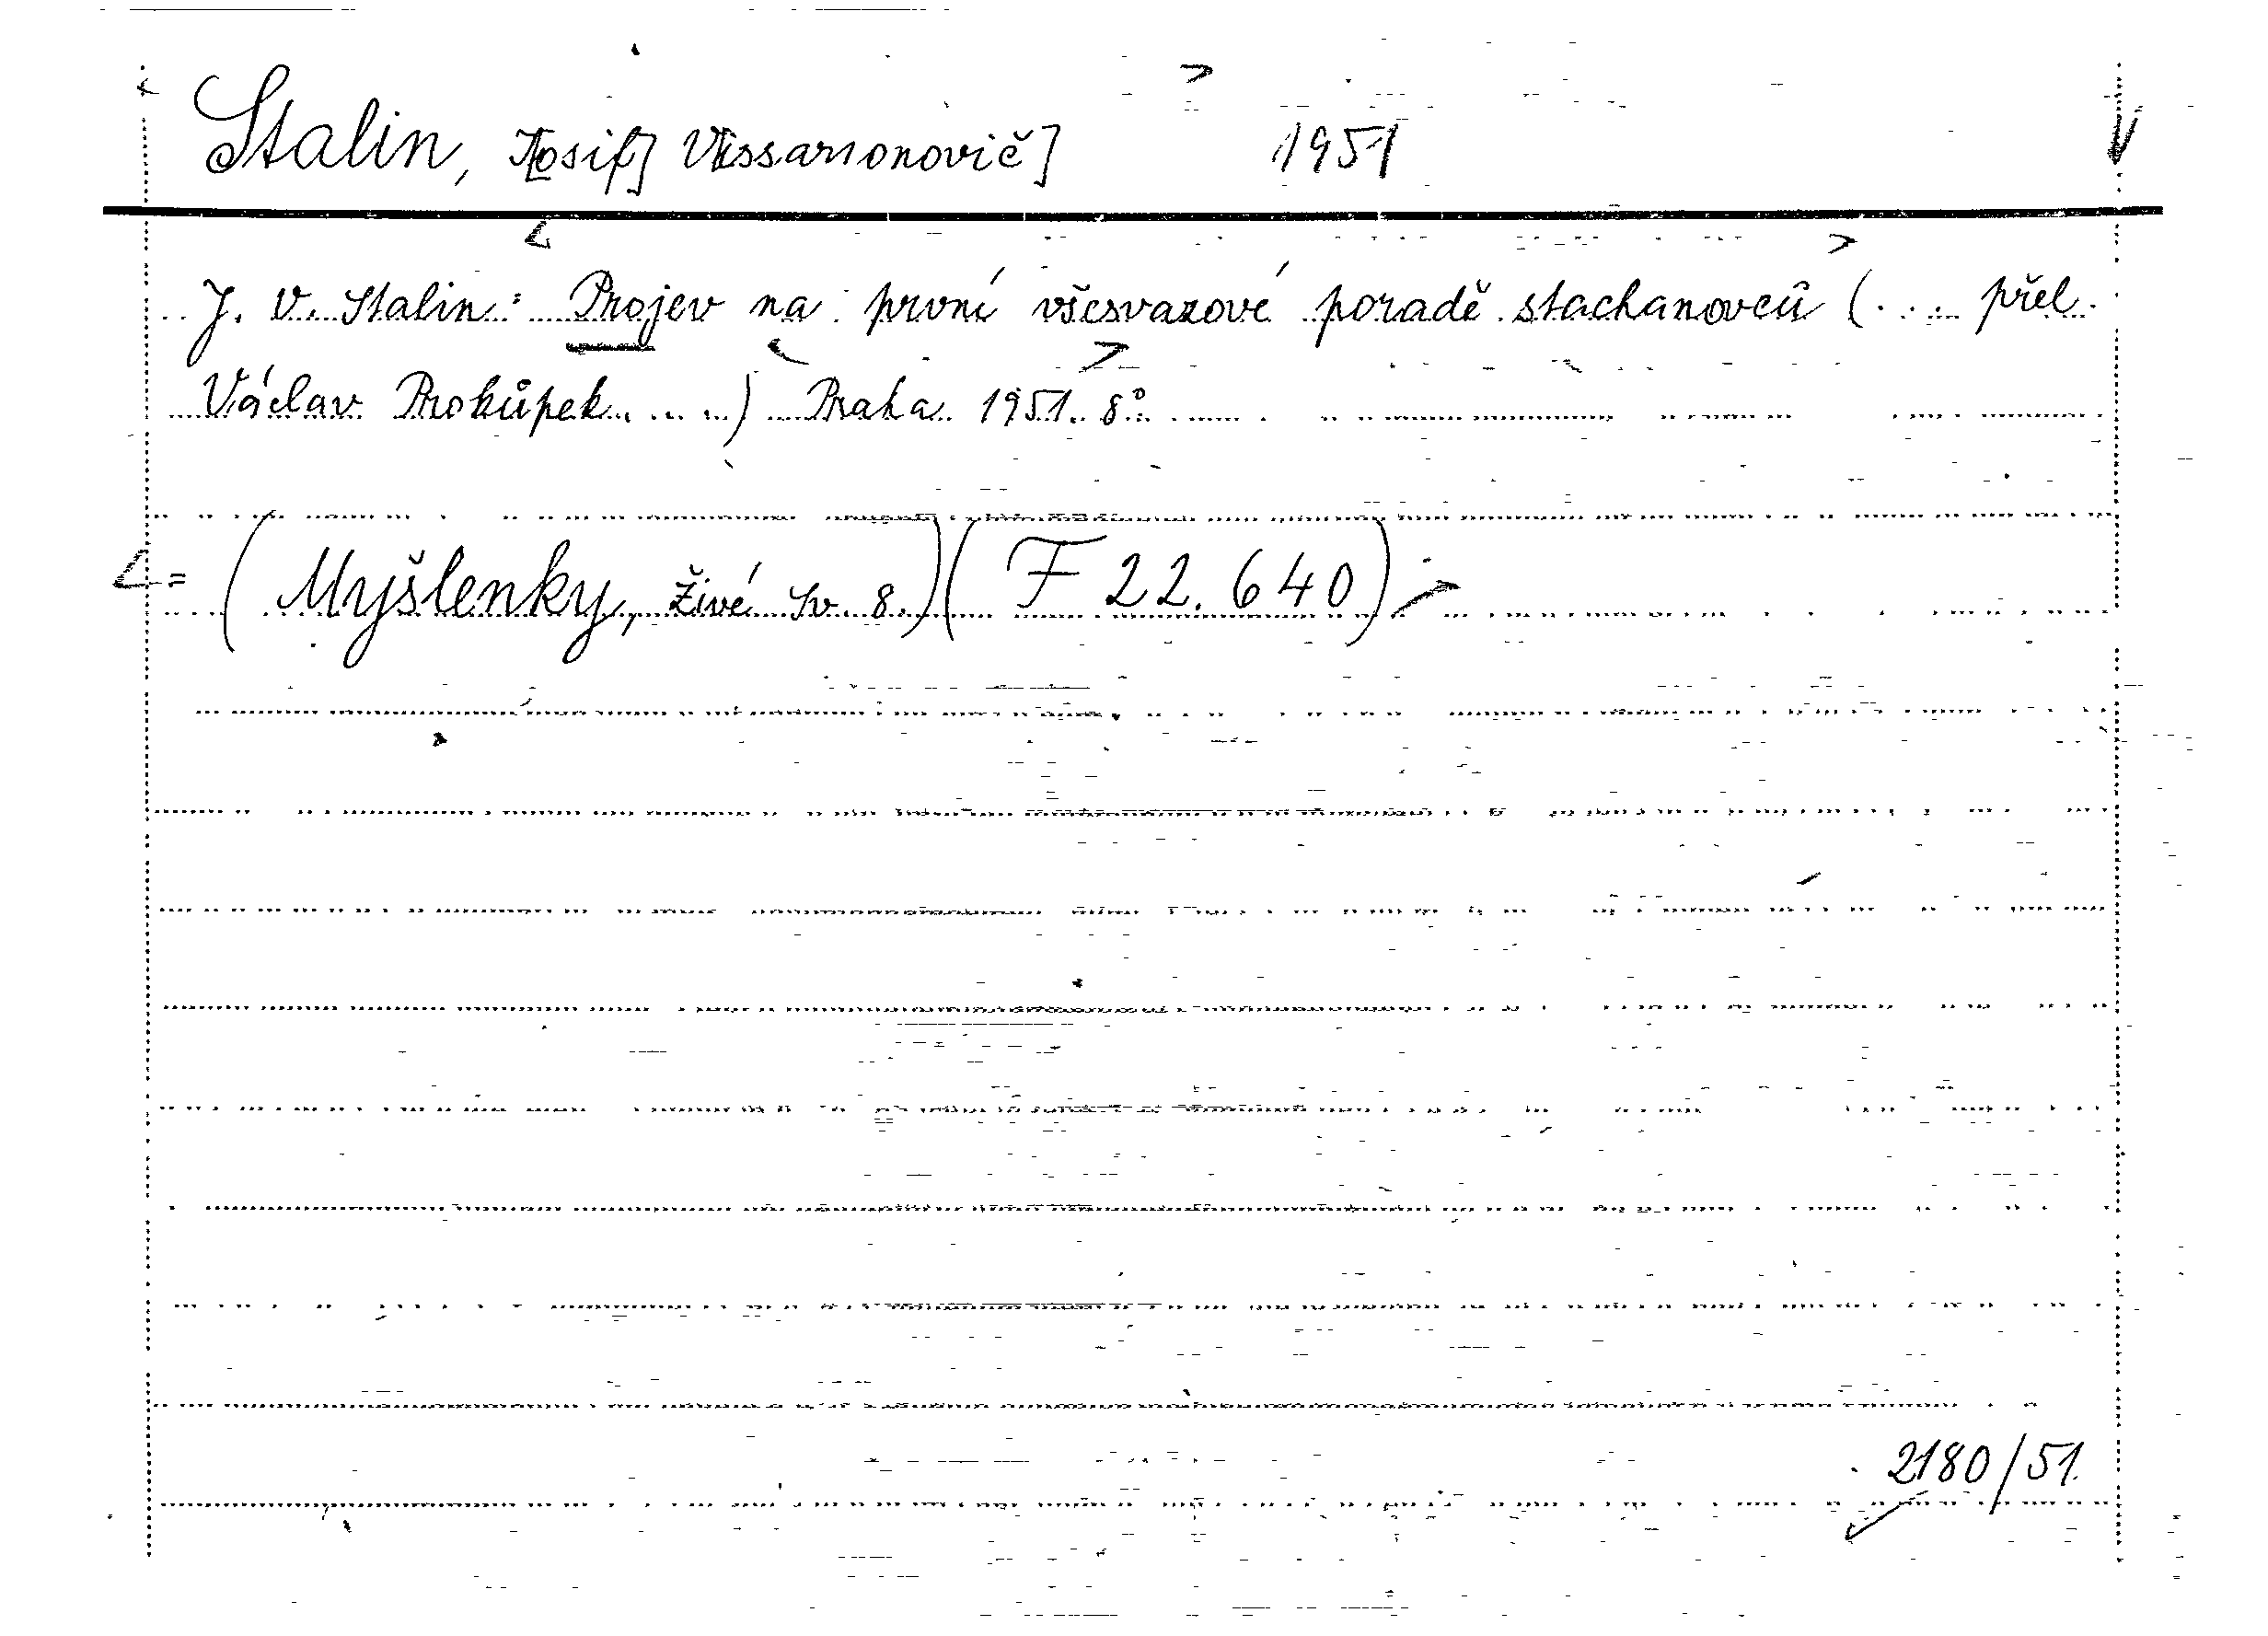 Stalin, J[osif] V[issarionovič] 1951
J. V. Stalin: Projev na první všesvazové poradě stachanovců (... přel.
Václav Prokůpek ....) Praha 1951. 8°
= (Myšlenky, živé sv. 8.) (F 22.640)
2180/51.